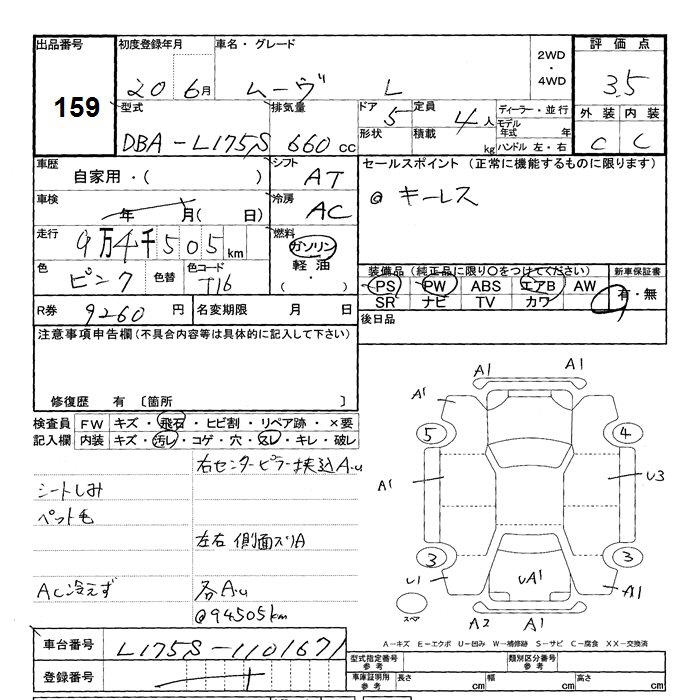 出品番号 初度登録年月 車名・グレード 2WD・4WD 評価点
159 20 6月 ムーヴ L 3.5
型式 排気量 ドア 定員 ディーラー・並行 外装 内装
DBA-L175S 660cc 5 4人 モデル年式 年 C C
形状 積載 kg ハンドル 左・右
車歴 シフト セールスポイント (正常に機能するものに限ります)
自家用・( ) AT @ キーレス
車検 冷房
年 月( 日) AC
走行 燃料
9万4千505km ガソリン
軽油
( ・ )
色 色替 色コード 装備品 (純正品に限り〇をつけてください) 新車保証書
ピンク T16 PS PW ABS エアB AW 有・無
SR ナビ TV カワ
R券 9260円 名変期限 月 日 後日品
注意事項申告欄(不具合内容等は具体的に記入して下さい)
修復歴 有 〔箇所 〕
検査員 FW キズ・飛石・ヒビ割・リペア跡・×要
記入欄 内装 キズ・汚レ・コゲ・穴・スレ・キレ・破レ
右センターピラー挟込A.u
シートしみ
ペット毛
左右 側面スリA
AC冷えず 各A.u
@94505km
A1 A1
A1
5 4
A1 U3
3 3
U1 UA1 A1
スペア A2 A1
A-キズ E-エクボ U-凹み W-補修跡 S-サビ C-腐食 XX-交換済
車台番号 L175S-1101671
型式指定番号 参考 類別区分番号 参考
登録番号 車庫証明用 参考 長さ cm 幅 cm 高さ cm